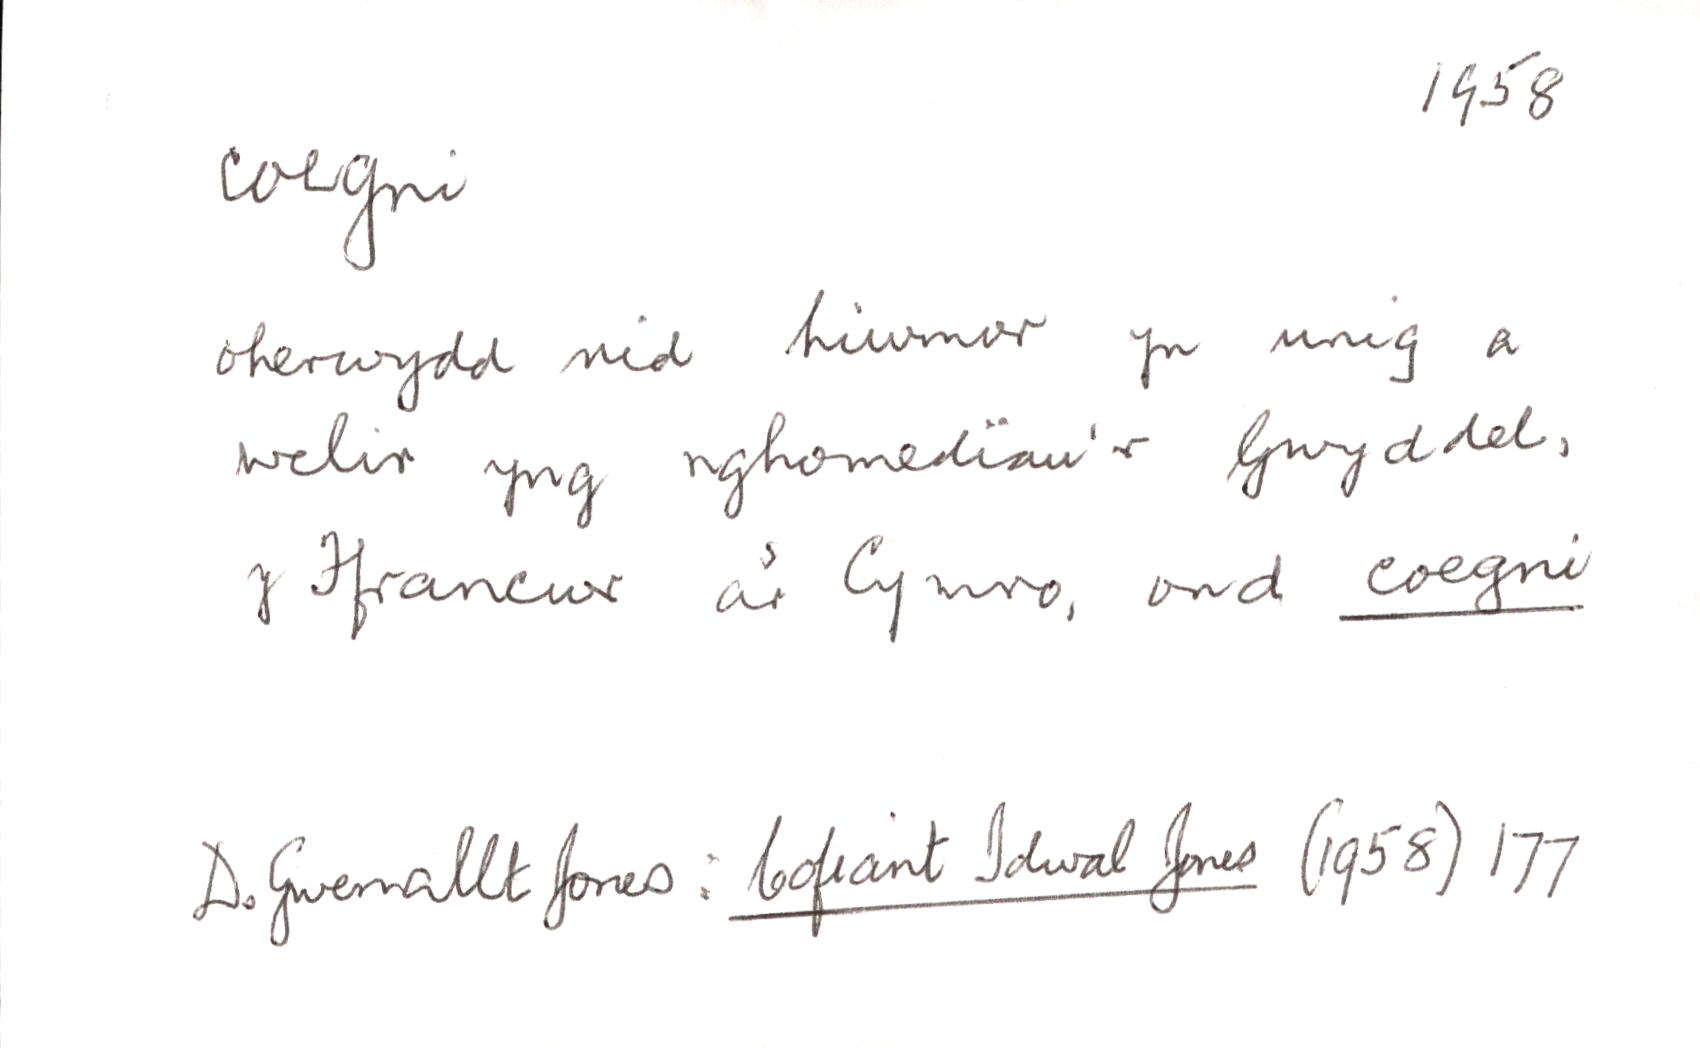 1958
coegni
oherwydd nid hiwmor yn unig a
welir yng nghomedïau'r Gwyddel,
y Ffrancwr a'r Cymro, ond coegni
D. Gwenallt Jones: Cofiant Idwal Jones (1958) 177